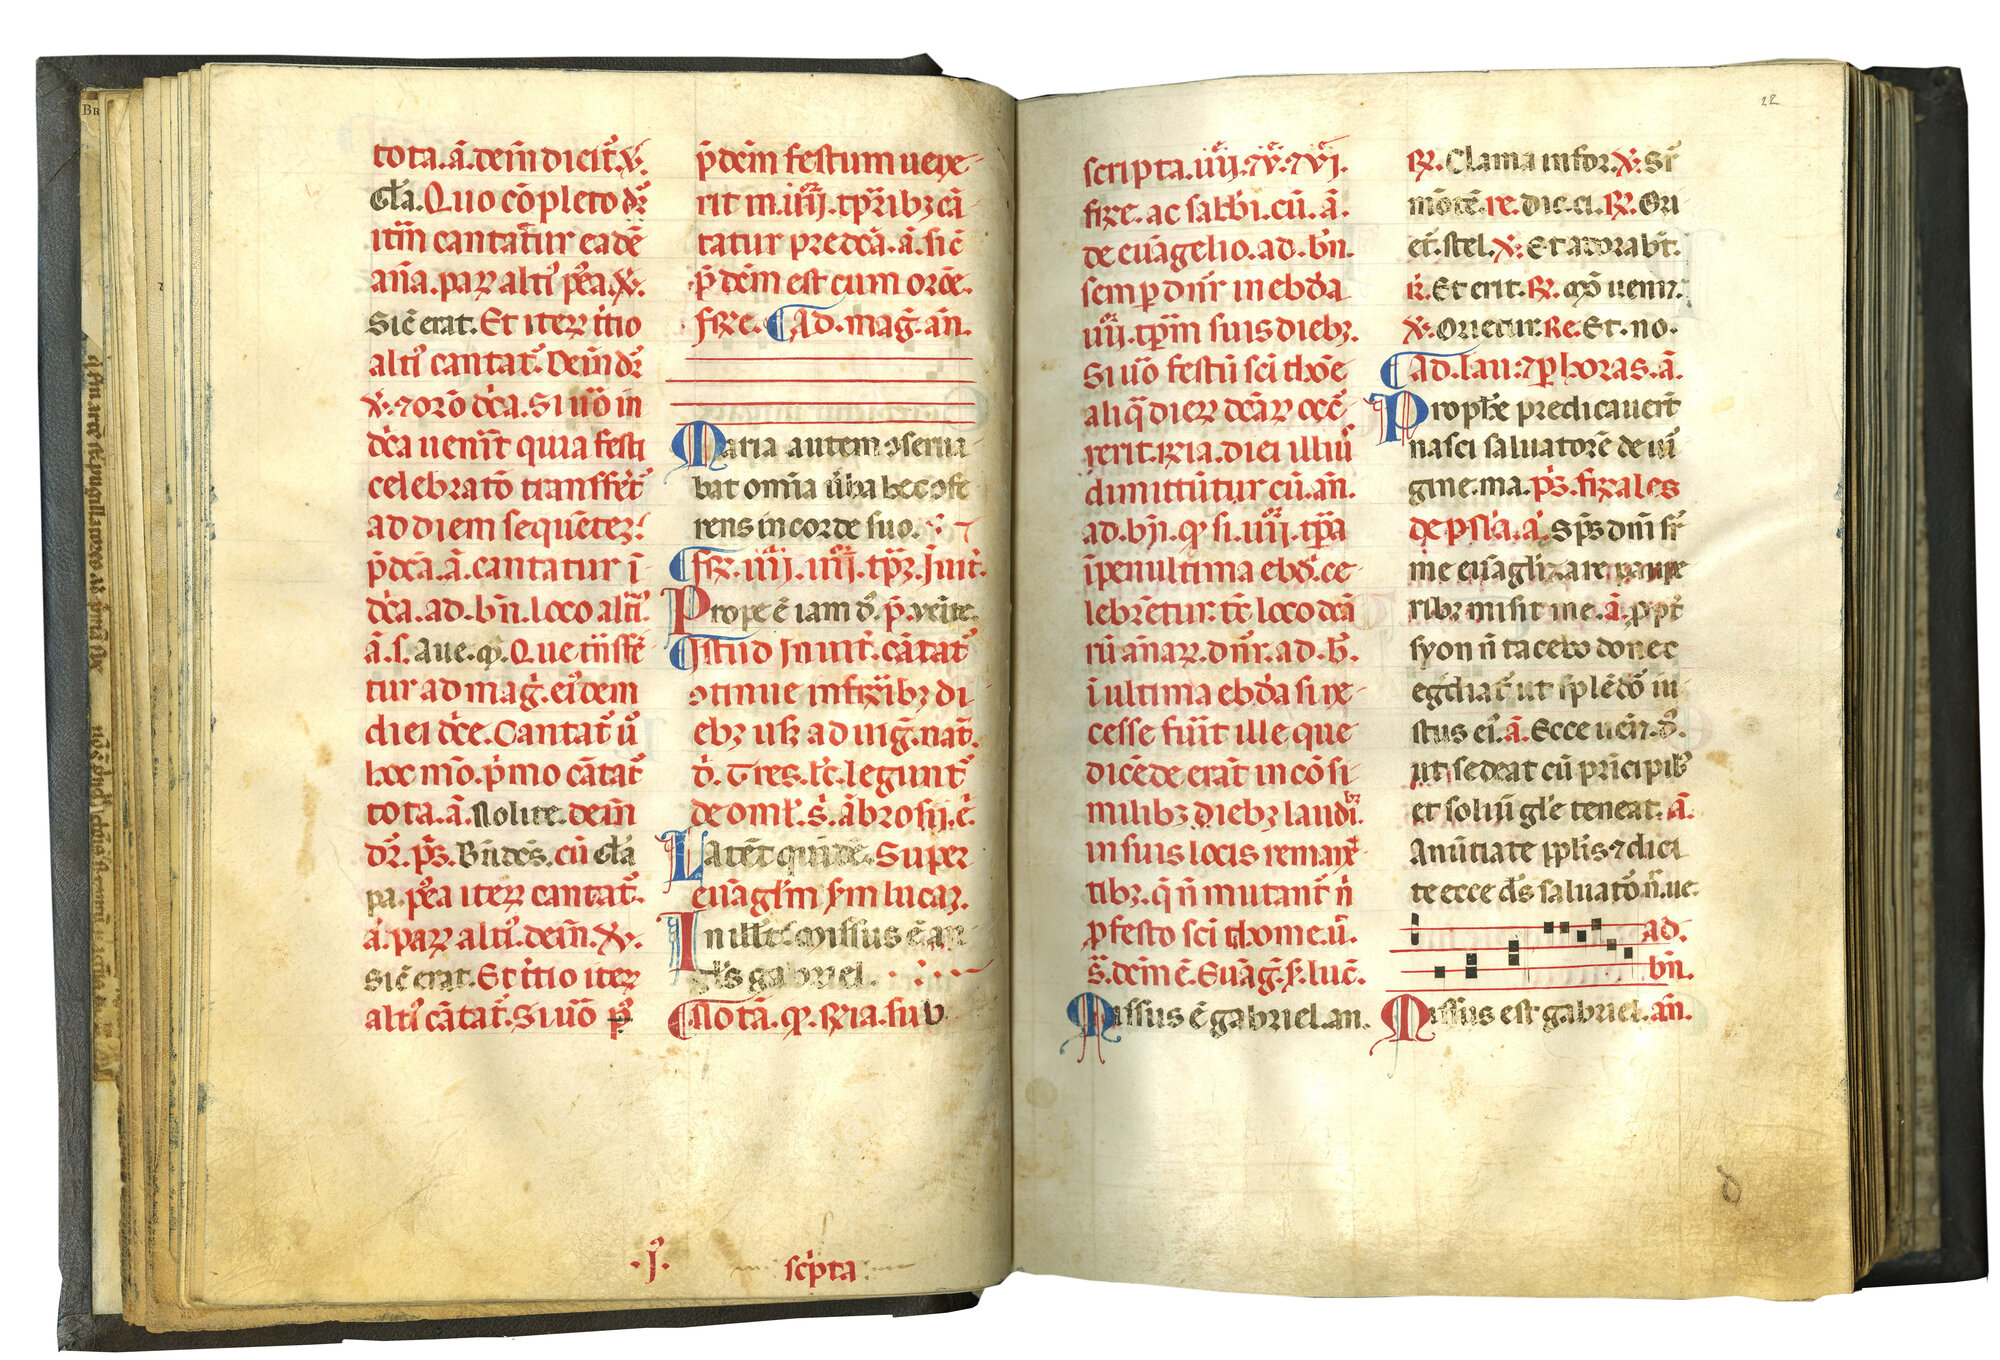 tota. ā. deīn dicit᷑ ℣.
Gl̄a. Quo cōpleto dr̄
itm̄ cantat̄ur eadē
an̄a. parꝝ alti᷑ p̄ea. ℣.
Sic̄ erat. Et iterꝝ ītio
alti᷑ cantat᷑. Dein̄ dr̄
℣. ⁊ orō dc̄a. Si uō in
dc̄a uenīt quia festi
celebratō transfer̄t᷑
ad diem sequētez.
p̄dc̄a. ā. cantatur ī
dc̄a. ad. bn̄. loco alti᷑.
ā. s. Aue. Que trāsfer̄
tur ad maḡ. ei᷑dem
diei dc̄e. Cantat᷑ ū
hoc mō. p̄mo cātat᷑
tota. ā. Nolite. dein̄
dr̄. p̄s. Bn̄dc̄s. cū gl̄a
pa. p̄ea iterꝝ cantat᷑.
ā. parꝝ alti᷑. dein̄. ℣.
Sic̄ erat. Et ītio iterꝝ
alti᷑ cātat᷑. Si uō p᷑
p̄ dem̄ festum uene
rit in. iiij. tp̄ribꝫ cā
tatur predc̄a. ā. sic̄
p̄ dem̄ est cum orōe.
fixe. Ad. maḡ. an̄.
Maria autem ꝯserua
bat omīa ūba hec ꝯfe
rens in corde suo.
fr̄. iiij. iiij. tp̄ꝝ. Inuit.
Prope ē iam dn̄. p̄. Venite.
Istud Inuit. cātat᷑
ꝯtinue in fr̄ibꝫ di
ebꝫ usꝫ ad uiḡ. nat᷑.
d̄. Tres. lc̄. legunt᷑
de oml̄. s̄. ābrosij. ē.
Latēt quidē. Super
euāgl̄m s̄m lucaꝫ.
In ill̄. t̄. Missus ē an
gl̄s gabriel.
Notā. ꝙ. Rr̄ia. sub
.I.
sc̄pta
22
scripta. iiij. ⁊ v. ⁊ vi.
fixe. ac sabb̄i. cū. ā.
de euāgelio. ad. bn̄.
semp̄ dn̄r in ebd̄a
iiij. tp̄m suis diebꝫ.
Si uō festū sc̄i thōe
aliq̄ dierꝝ dc̄arꝝ occ̄
rerit. Rr̄ia. diei illiū
dimittūtur cū. an̄.
ad. bn̄. ꝙ si. iiij. tp̄a
ī penultima ebd̄. ce
lebrētur. tc̄ loco dc̄a
rū an̄arꝝ. dn̄r. ad. b̄.
ī ultima ebd̄a si re
cesse fuīt ille que
dicēde erāt in cōsi
milibꝫ diebꝫ laudibꝫ.
in suis locis remanē
tibꝫ. q̄ n̄ mutant᷑ n̄
p̄ festo sc̄i thome. ū.
s̄. dem̄ ē. Euāḡ. s. luc̄.
Missus ē gabriel. an.
℟. Clama in for. ℣. Si
n̄ocē. re. dic. ci. ℟. Ori
et᷑. stel. ℣. Et adorabt̄.
ij. Et erit. ℟. Qn̄ ueni᷑.
℣. Orietur. Re. Et. no.
Ad. lau. ⁊ p̄ horas. ā.
Prophē predicauerūt
nasci saluatorē de ui᷑
gine. ma. p̄s. fixales
de ps̄ia. ā. Sp̄s dn̄i sr̄
me euāglizare paupe
ribꝫ misit me. ā. ppt᷑
syon n̄ tacebo donec
egdiat᷑ ut splēdō iu
stus ei᷑. ā. Ecce ueni᷑. dn̄.
ut sedeat cū prīcipibꝫ
et soliū gl̄e teneat. ā.
Anūtiate pplis ⁊ dici
te ecce dēs saluatō n̄r. ue.
ad.
bn̄.
Missus est gabriel. an̄.